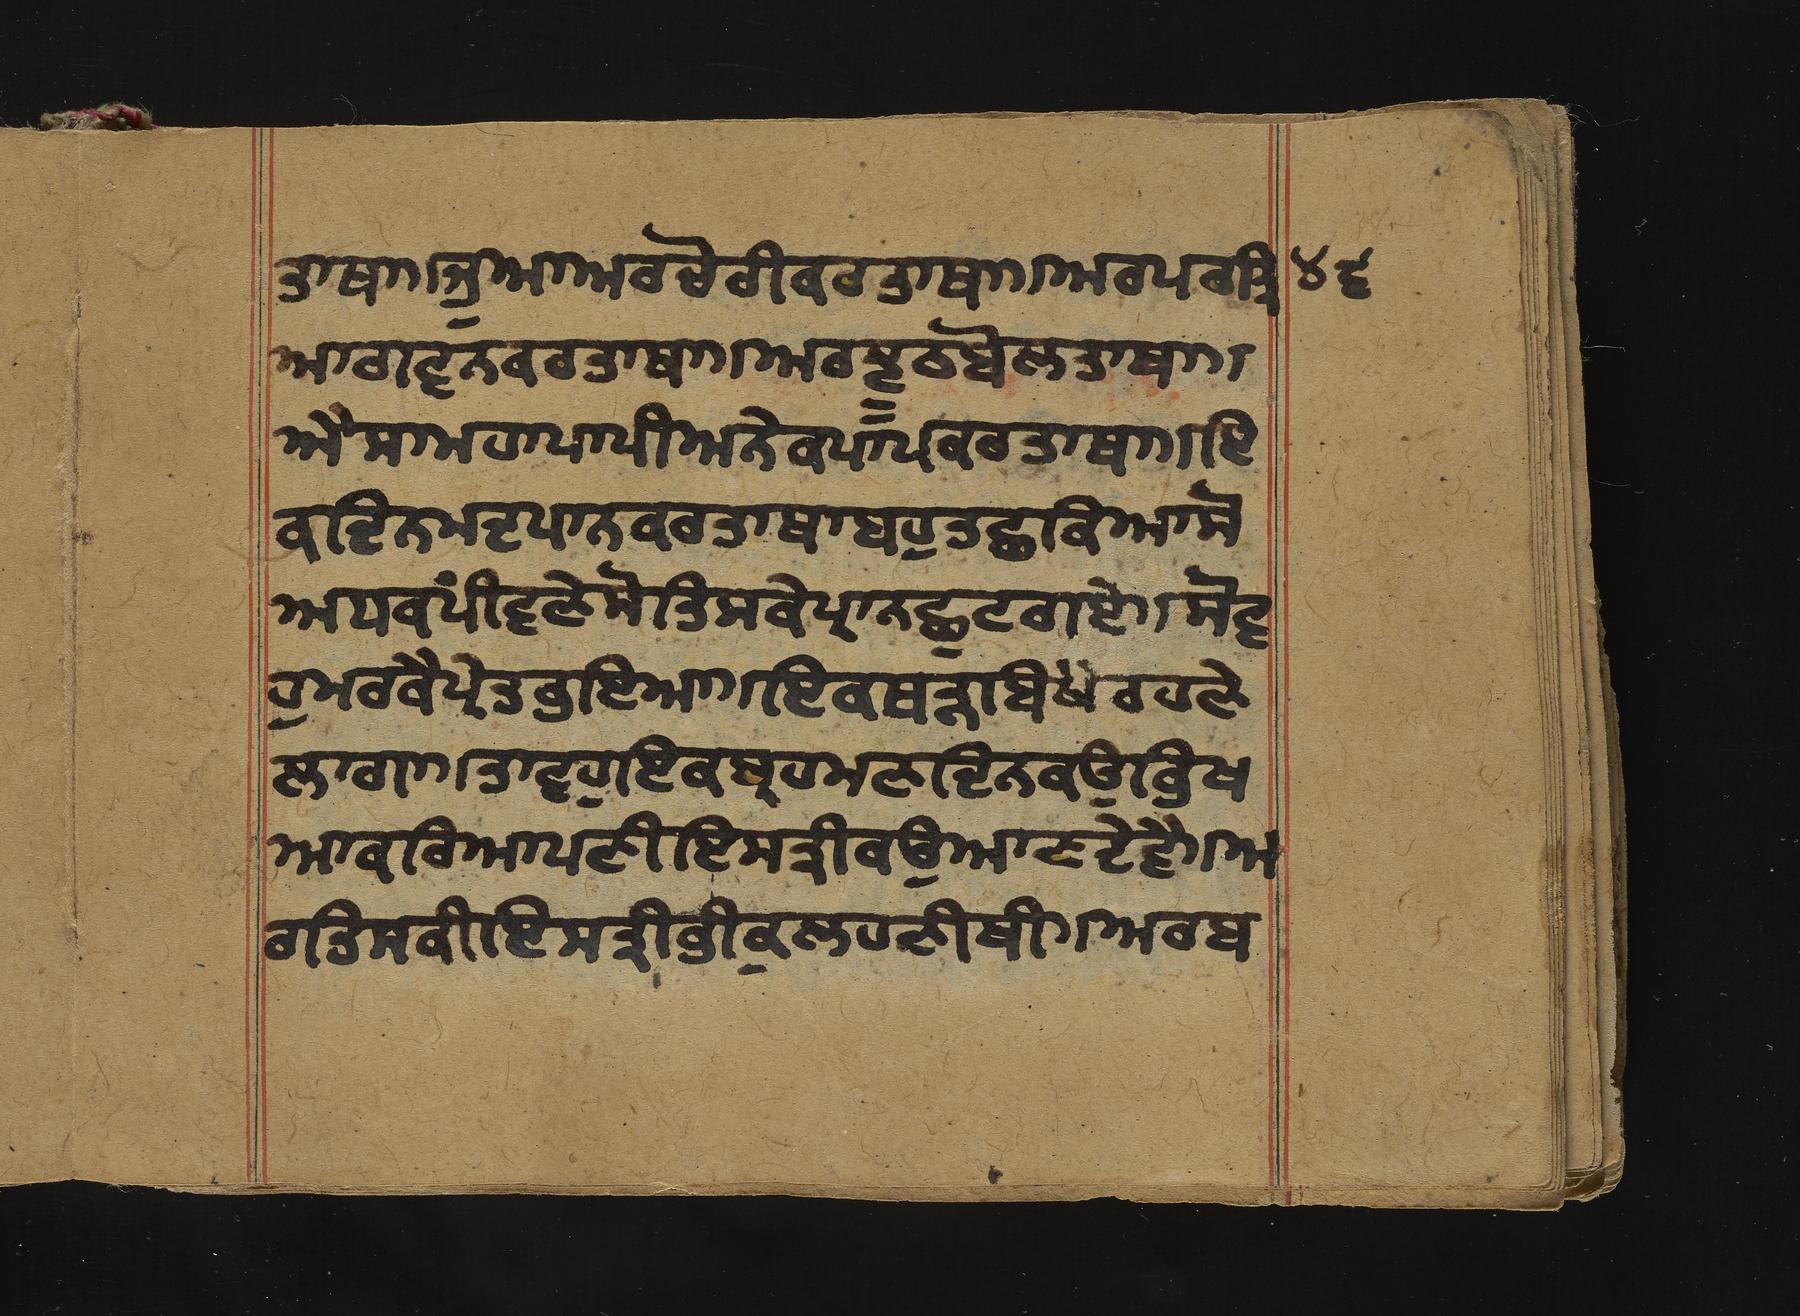 ਤਾਥਾ।ਜੂਆਅਰਚੋਰੀਕਰਤਾਥਾ।ਅਰਪਰਤ੍ਰਿ ੪੬
ਆਗਵਨਕਰਤਾਥਾ।ਅਰਝੂਠਬੋਲਤਾਥਾ।
ਐਸਾਮਹਾਪਾਪੀਅਨੇਕਪਾਪਕਰਤਾਥਾ।ਇ
ਕਦਿਨਮਦਪਾਨਕਰਤਾਥਾਬਹੁਤਛਕਿਆਸੋ
ਅਧਕਪੀਵਣੇਸੋਤਿਸਕੇਪ੍ਰਾਨਛੁਟਗਏ।ਸੋਵ
ਹੁਮਰਕੈਪ੍ਰੇਤਭੁਇਆ।ਇਕਬਨਾਬਿਖੇਰਹਣੇ
ਲਾਗਾ।ਤਾਵਹੁਇਕਬ੍ਰਹਮਣਦਿਨਕਉਭੁਖ
ਆਕਰਿਆਪਣੀਇਸਤ੍ਰੀਕਉਆਣਦੇਵੈ।ਅ
ਰਤਿਸਕੀਇਸਤ੍ਰੀਭੀਕੁਲਹਣੀਥੀ।ਅਰਬ